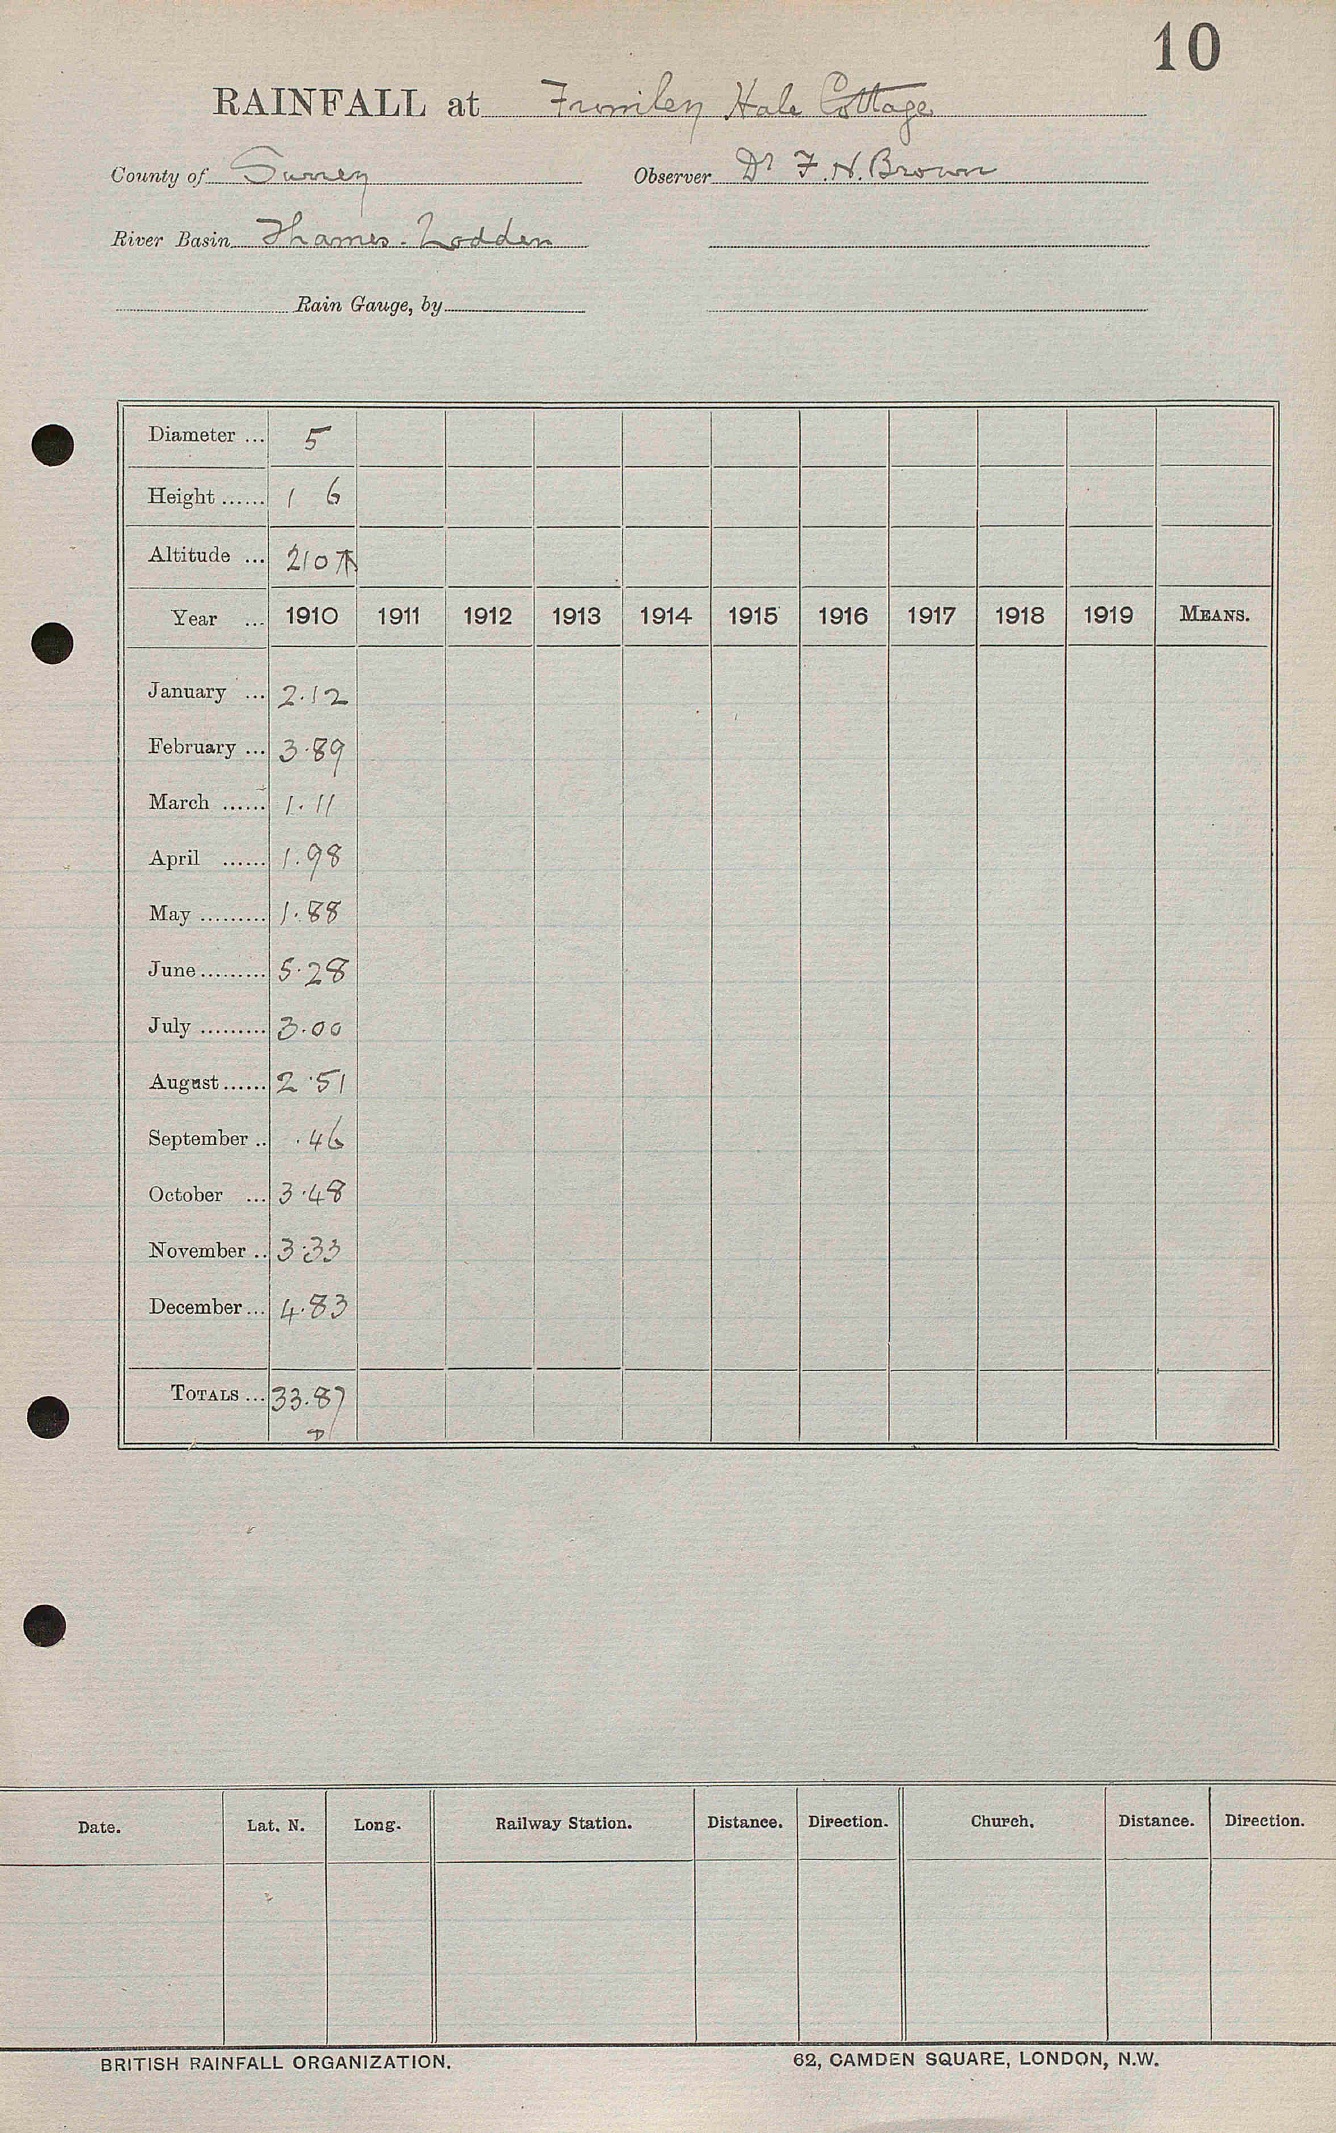 10
RAINFALL at Frimley Hale Cottage
County of Surrey Observer Dr F. N. Brown
River Basin Thames - Lodden
Rain Gauge, by
Diameter ... 5
Height ...... 1 6
Altitude ... 210
Year ... 1910 1911 1912 1913 1914 1915 1916 1917 1918 1919 MEANS.
January ... 2.12
February ... 3.89
March ...... 1.11
April ...... 1.98
May ......... 1.88
June ......... 5.28
July ......... 3.00
August ...... 2.51
September .. .46
October ... 3.48
November .. 3.33
December ... 4.83
TOTALS ... 33.87
Date. Lat. N. Long. Railway Station. Distance. Direction. Church. Distance. Direction.
BRITISH RAINFALL ORGANIZATION. 62, CAMDEN SQUARE, LONDON, N.W.